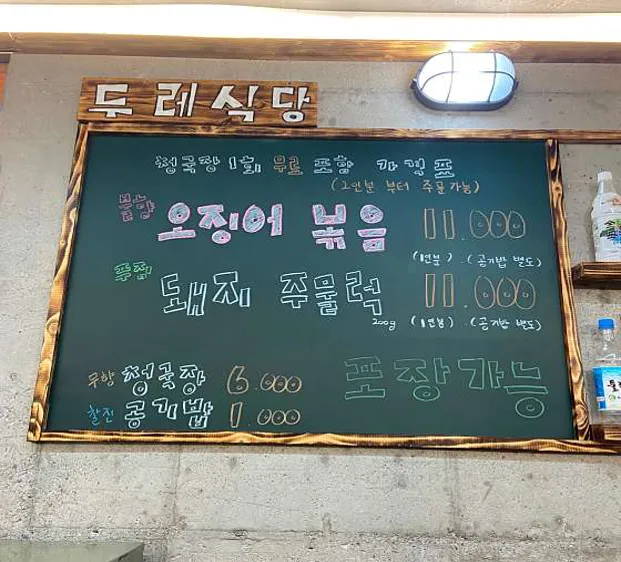 두레식당
청국장 1회 무료 포함 가격표
(2인분 부터 주문가능)
불향 오징어 볶음 11.000
(1인분) (공기밥 별도)
푸짐 돼지 주물럭 11.000
200g (1인분) (공기밥 별도)
무향 청국장 6.000
찰진 공기밥 1.000
포장가능